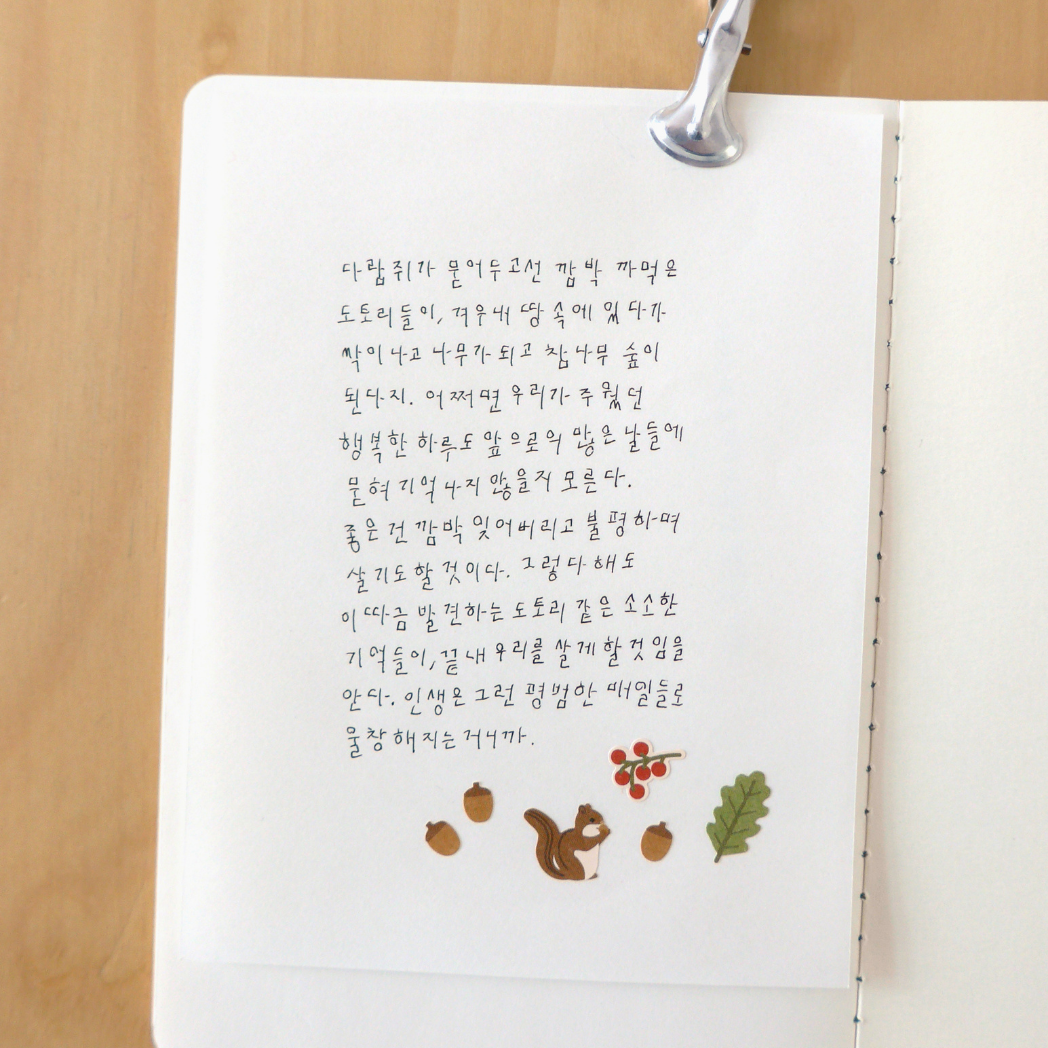 다람쥐가 묻어두고선 깜박 까먹은
도토리들이, 겨우내 땅 속에 있다가
싹이 나고 나무가 되고 참나무 숲이
된다지. 어쩌면 우리가 주웠던
행복한 하루도 앞으로의 많은 날들에
묻혀 기억 나지 않을지 모른다.
좋은 건 깜박 잊어버리고 불평하며
살기도 할 것이다. 그렇다해도
이따금 발견하는 도토리 같은 소소한
기억들이, 끝내 우리를 살게 할 것임을
안다. 인생은 그런 평범한 매일들로
울창해지는 거니까.